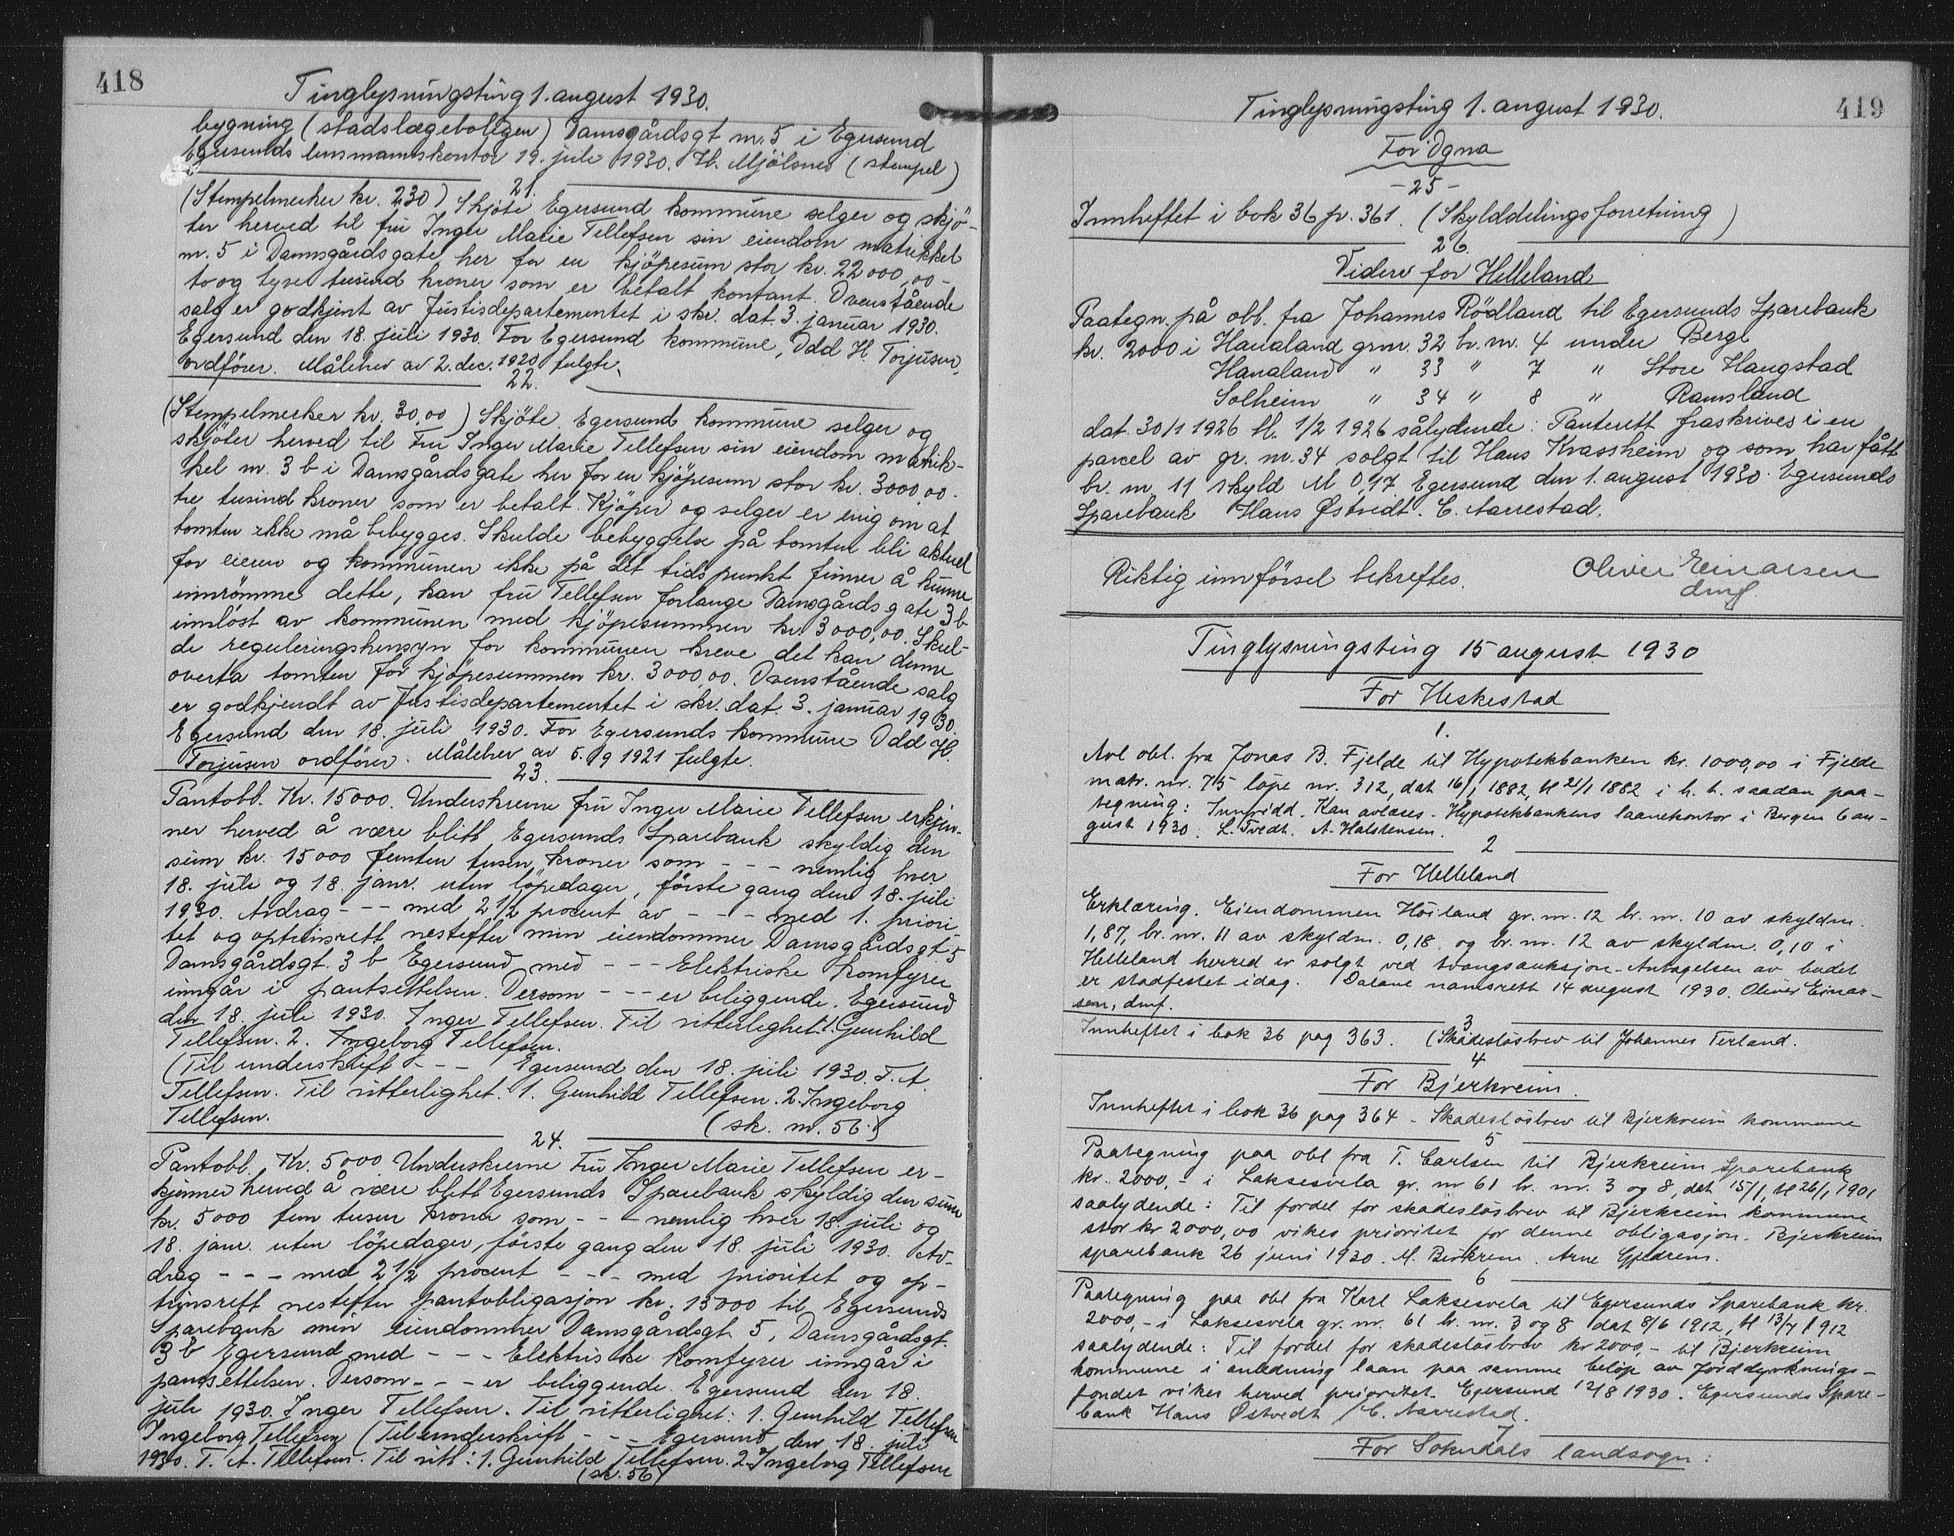 418
Tinglysningsting 1. august 1930.
bygning (stadslægeboligen) Damsgårdsgt nr. 5 i Egersund
Egersunds lensmannskontor 19. juli 1930. H. Mjölsnes (stempel)
21.
(Stempelmerker kr. 230) Skjöte Egersund kommune selger og skjö-
ter herved til fru Inger Marie Tellefsen sin eiendom matrikkel
nr. 5 i Damsgårdsgate her for en kjöpesum stor kr. 22000,00 -
to og tyve tusind kroner som er betalt kontant. Ovenstående
salg er godkjent av Justisdepartementet i skr. dat. 3. januar 1930.
Egersund den 18. juli 1930. For Egersund kommune, Odd H. Torjusen
ordförer. Målebrev av 2. dec. 1920 fulgte.
22.
(Stempelmerker kr. 30,00) Skjöte. Egersund kommune selger og
skjöter herved til Fru Inger Marie Tellefsen sin eiendom matrik-
kel nr. 3 b i Damsgårdsgate her for en kjöpesum stor kr. 3000,00 -
tre tusind kroner som er betalt. Kjöper og selger er enig om at
tomten ikke må bebygges. Skulde bebyggelse på tomten bli aktuel
for eieren og kommunen ikke på det tidspunkt finner å kunne
innrömme dette, kan fru Tellefsen forlange Damsgårdsgate 3 b
innlöst av kommunen med kjöpesummen kr. 3000,00. Skul-
de reguleringshensyn for kommunen kreve det kan denne
overta tomten for kjöpesummen kr. 3000,00. Ovenstående salg
er godkjendt av Justisdepartementet i skr. dat. 3. januar 1930.
Egersund den 18. juli 1930. For Egersunds kommune Odd H.
Torjusen ordförer. Målebrev av 5./9 1921 fulgte.
23.
Pantobl. Kr. 15000. Underskrevne fru Inger Marie Tellefsen erkjen-
ner herved å være blitt Egersunds Sparebank skyldig den
sum kr. 15000 femten tusen kroner som - - - nemlig hver
18. juli og 18. janr. uten löpedager, förste gang den 18. juli
1930. Avdrag - - - med 2 1/2 procent av - - - med 1. priori
tet og optrinsrett nestefter min eiendommer Damsgårdsgt. 5
Damsgårdsgt. 3 b Egersund med - - - Elektriske komfyrer
inngår i pantsettelsen. Dersom - - - er beliggende. Egersund
den 18. juli 1930. Inger Tellefsen. Til vitterlighet: 1. Gunhild
Tellefsen. 2. Ingeborg Tellefsen.
(Til underskrift - - - Egersund den 18. juli 1930. T. A.
Tellefsen. Til vitterlighet. 1. Gunhild Tellefsen. 2. Ingeborg
Tellefsen. (sk. nr. 56.)
24.
Pantobl. Kr. 5000 Underskrevne Fru Inger Marie Tellefsen er-
kjenner herved å være blitt Egersunds Sparebank skyldig den sum
kr. 5000 fem tusen kroner som - - - nemlig hver 18. juli og
18. janr. uten löpedager, förste gang den 18. juli 1930. Av-
drag - - - med 2 1/2 procent - - - med prioritet og op-
trinsrett nestefter pantobligasjon kr. 15000 til Egersunds
Sparebank min eiendommer Damsgårdsgt 5, Damsgårdsgt.
3 b Egersund med - - - Elektriske komfyrer inngår i
pantsettelsen. Dersom - - - er beliggende. Egersund den 18.
juli 1930. Inger Tellefsen. Til vitterlighet: 1. Gunhild Tellefsen
Ingeborg Tellefsen (Til underskrift - - - Egersund den 18. juli
1930. T. A. Tellefsen. Til vitt: 1. Gunhild Tellefsen. 2. Ingeborg Tellefsen
(sk. 56)
419
Tinglysningsting 1. august 1930.
For Ogna
- 25 -
Innheftet i bok 36 p. 361. (Skylddelingsforretning)
26.
Videre for Helleland
Paategn. på obl. fra Johannes Rödland til Egersunds Sparebank
kr. 2000 i Hanaland grnr. 32 br. nr. 4 under Berge
Hanaland " 33 " 7 " Store Haugstad
Solheim " 34 " 8 " Ramsland
dat 30/1 1926 tl. 1/2 1926 sålydende: Panterett fraskrives i en
parcel av gr. nr. 34 solgt til Hans Kvassheim og som har fått
br. nr. 11 skyld M 0,47 Egersund den 1. august 1930. Egersunds
Sparebank Hans Østvedt. C. Aarrestad.
Riktig innförsel bekreftes. Oliver Einarsen
dmf
Tinglysningsting 15 august 1930
For Heskestad
1.
Avl obl. fra Jonas B. Fjelde til Hypotekbanken kr. 1000,00 i Fjelde
matr. nr. 75 löpe nr. 312, dat 16/1 1882, tl 21/1 1882 i h. t. saadan paa-
tegning: Innfridd. Kan avlæses. Hypotekbankens laanekontor i Bergen 6 au-
gust 1930. L. Tvedt. A. Halstensen.
2
For Helleland
Erklæring. Eiendommen Höiland gr. nr. 12 br. nr. 10 av skyldm.
1,87, br. nr. 11 av skyldm. 0,18 og br. nr. 12 av skyldm. 0,10 i
Helleland herred er solgt ved tvangsauksjon. Antagelsen av budet
er stadfestet idag. Dalane namsrett 14 august 1930. Oliver Einar-
sen, dmf.
3
Innheftet i bok 36 pag 363. (Skadeslösbrev til Johannes Terland.
4
For Bjerkreim.
Innheftet i bok 36 pag 364 - Skadeslösbrev til Bjerkreim kommune
5
Paategning paa obl fra T. Carlsen til Bjerkreim Sparebank
kr. 2000,- i Laksesvela gr. nr 61 br. nr. 3 og 8, dat 15/1, tl 26/1 1901
saalydende: Til fordel for skadeslösbrev til Bjerkreim kommune
stor kr 2000,00 vikes prioritet for denne obligasjon. Bjerkreim
sparebank 26 juni 1930. M. Birkrem. Arne Gjedrem.
6
Paategning paa obl fra Karl Laksesvela til Egersunds Sparebank kr.
2000,- i Laksesvela gr. nr. 61 br. nr. 3 og 8 dat 8/6 1912, tl 13/7 1912
saalydende: Til fordel for skadeslösbrev kr 2000,- til Bjerkreim
kommune i anledning laan paa samme belöp av Jorddyrknings-
fondet vikes herved prioritet. Egersund 12/8 1930. Egersunds Spare-
bank Hans Østvedt / C. Aarrestad.
7
For Sokndals landsogn: